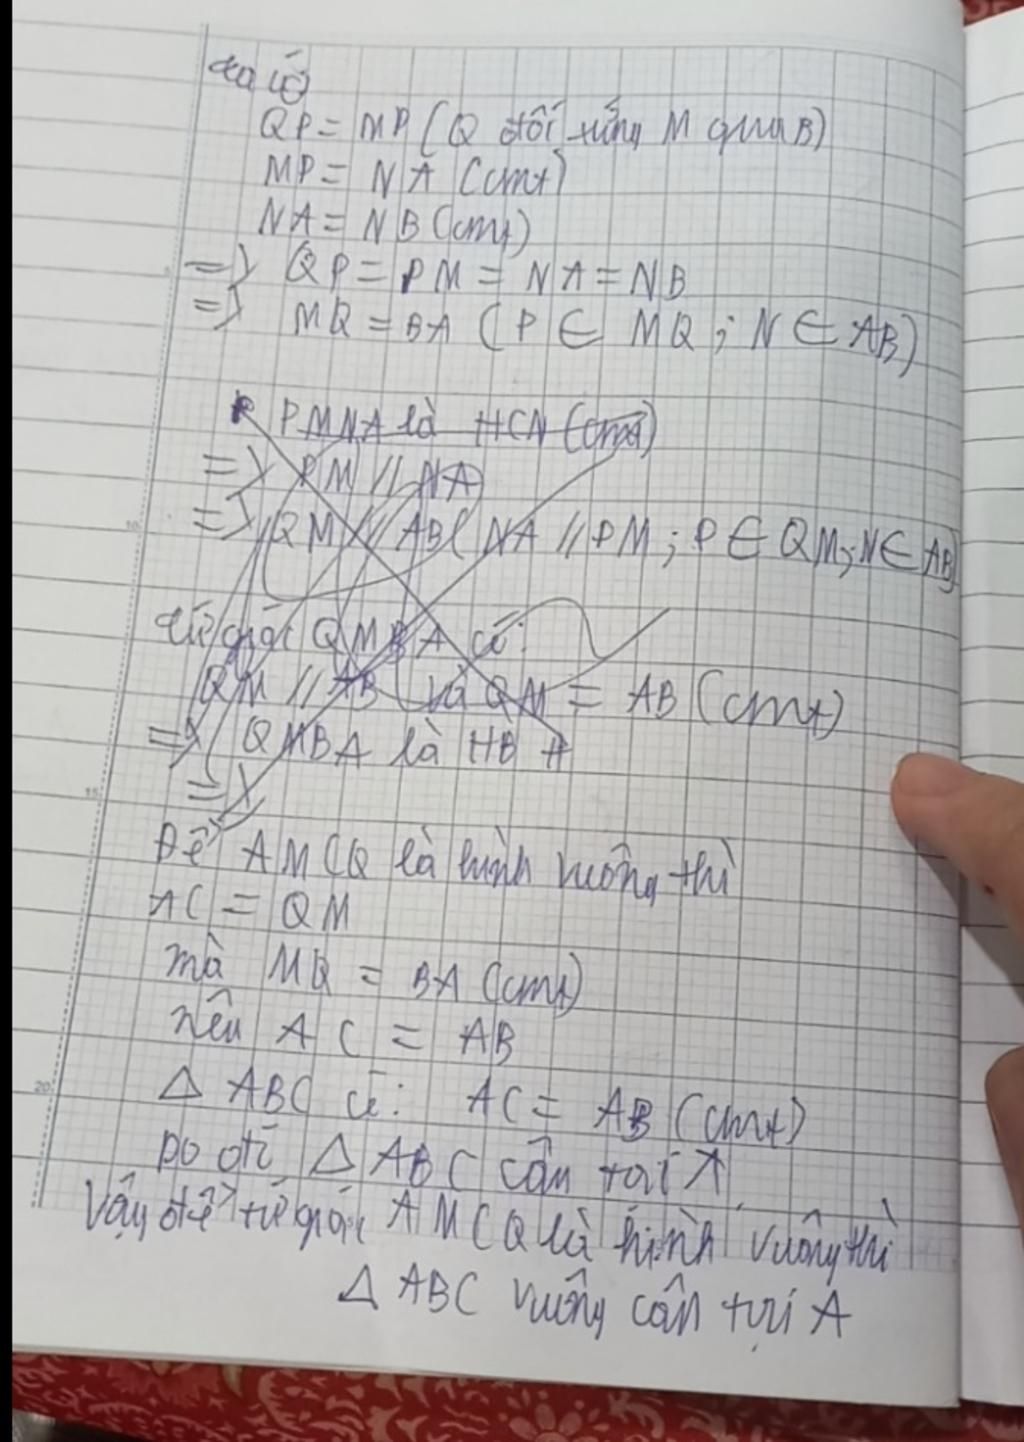 Ta có
QP = MP (Q đối xứng M qua B)
MP = NA (cmt)
NA = NB (cmt)
=> QP = PM = NA = NB
=> MQ = BA (P ∈ MQ ; N ∈ AB)
PMNA là HCN (cmt)
=> PM // NA
=> QM // AB ( NA // PM ; P ∈ QM ; N ∈ AB)
Tứ giác QMBA có:
QM // AB và QM = AB (cmt)
=> QMBA là HBH
=>
Để AMCQ là hình vuông thì
AC = QM
mà MQ = BA (cmt)
nên AC = AB
Δ ABC có: AC = AB (cmt)
Do đó Δ ABC cân tại A
Vậy để tứ giác AMCQ là hình vuông thì
Δ ABC vuông cân tại A
10
15
20